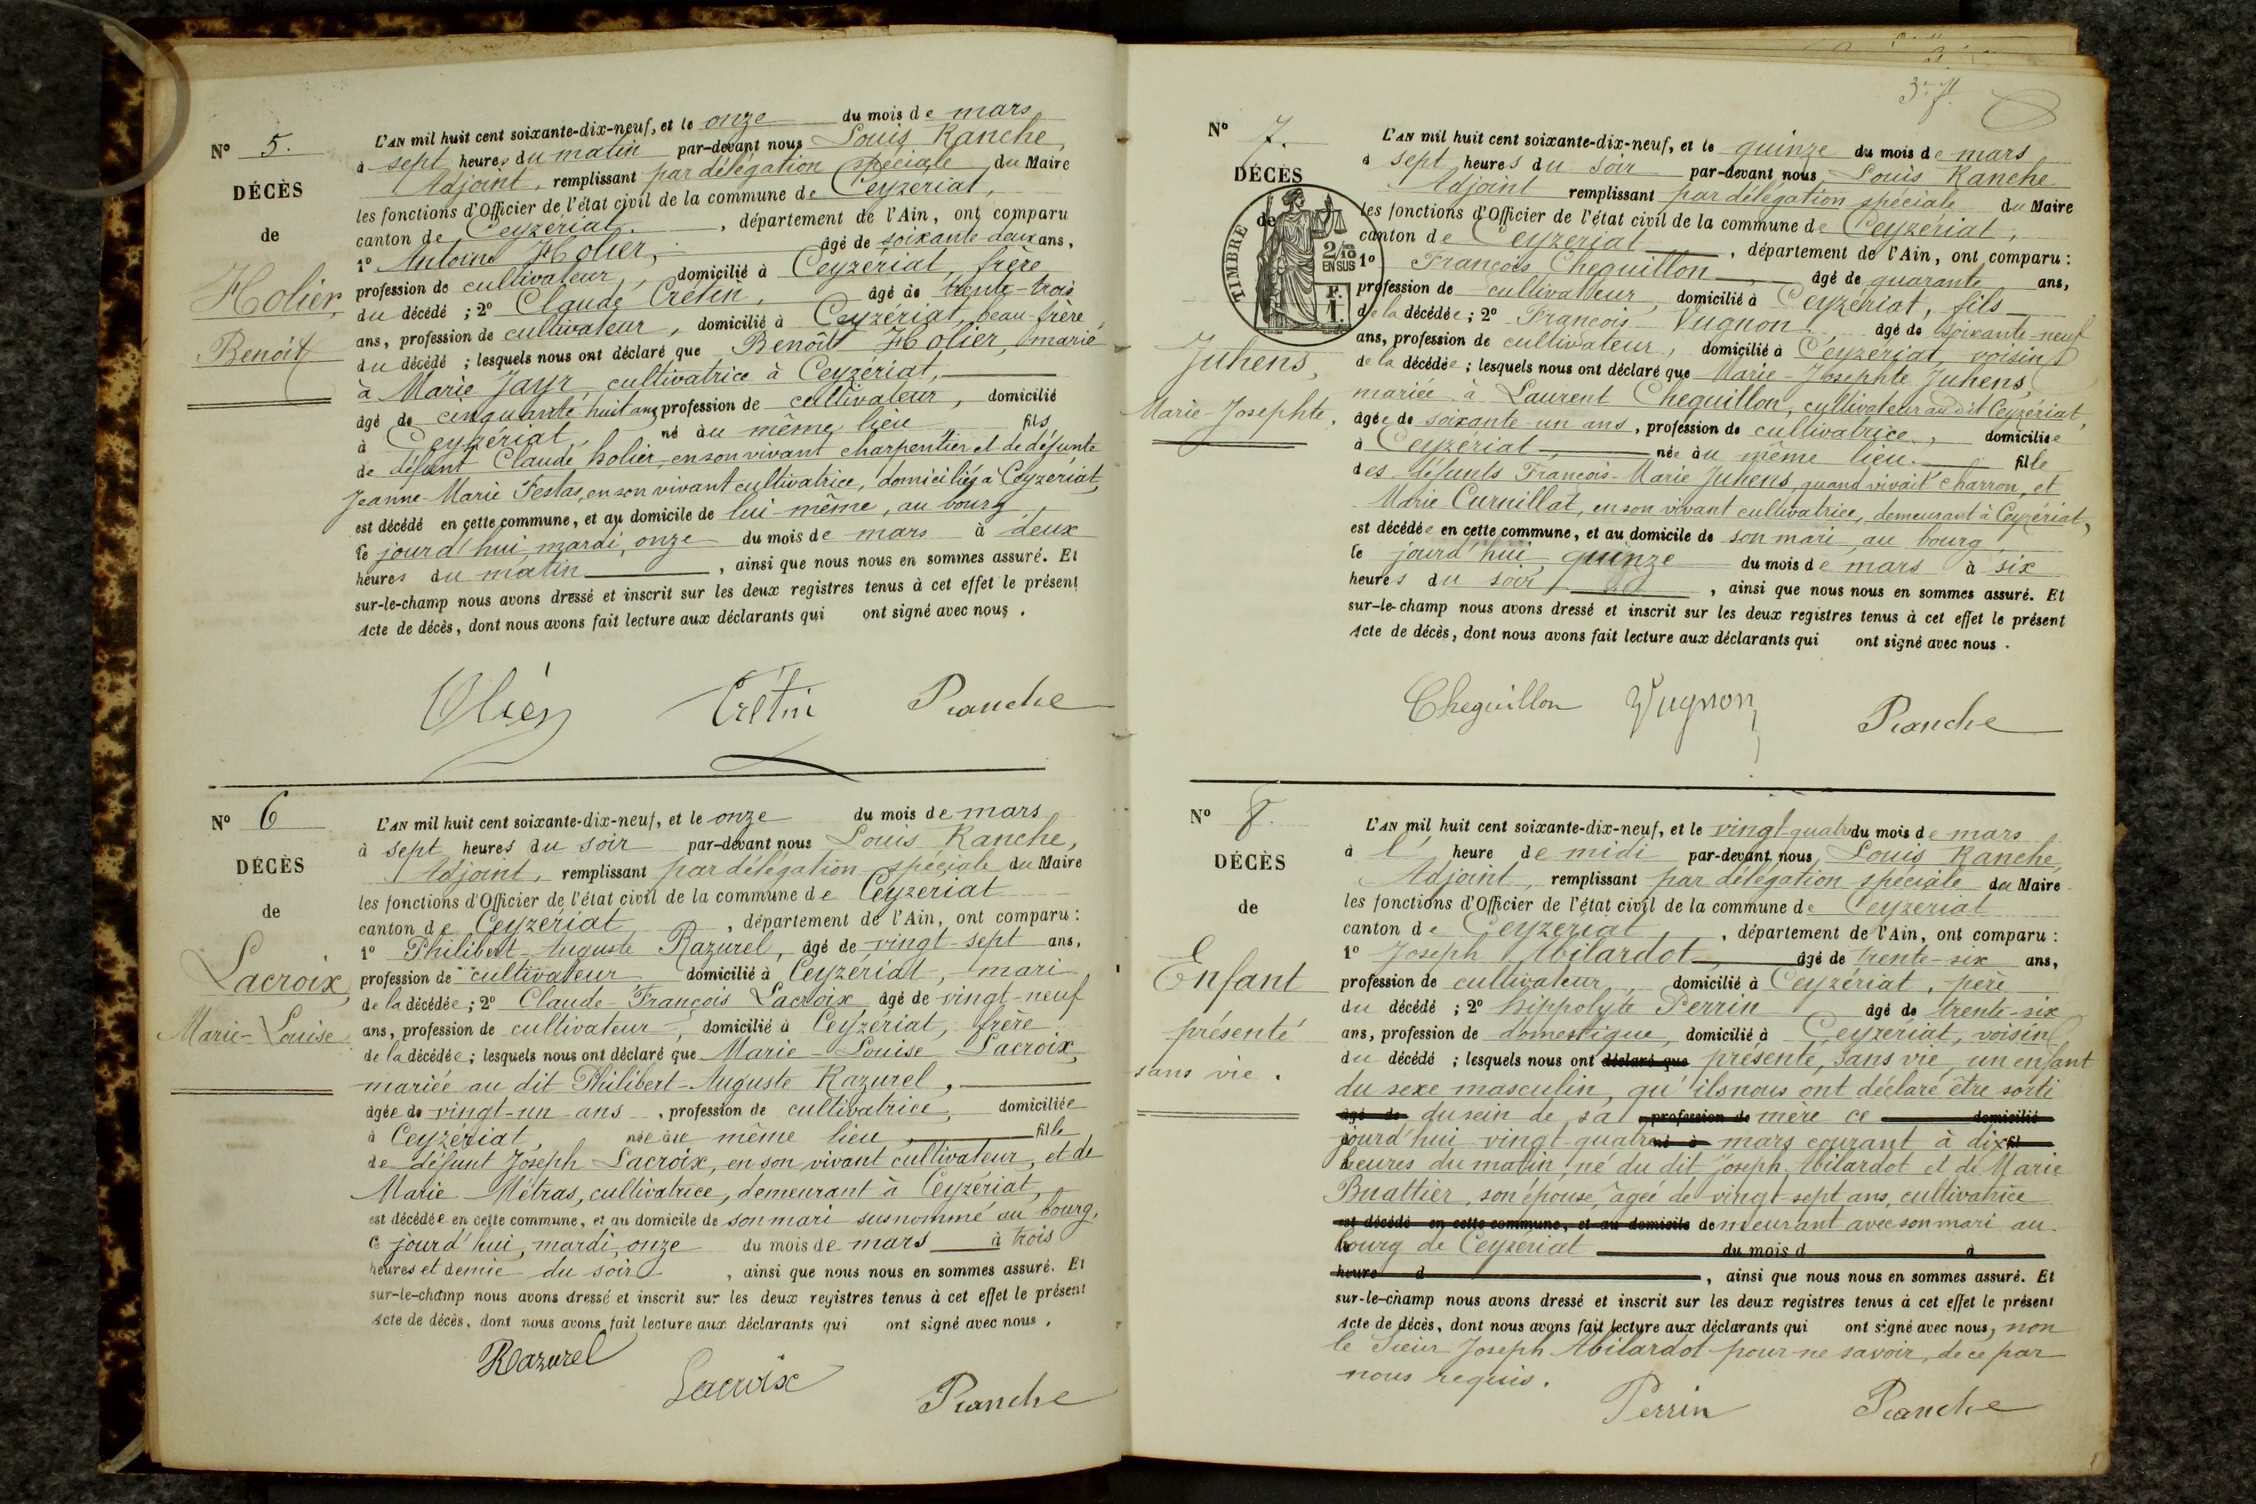 N° 5.
DÉCÈS
de
Holier,
Benoît
L'AN mil huit cent soixante-dix-neuf, et le onze du mois de mars
à sept heures du matin par-devant nous Louis Ranche,
Adjoint, remplissant par délégation spéciale du Maire
les fonctions d'Officier de l'état civil de la commune de Ceyzériat,
canton de Ceyzériat, département de l'Ain, ont comparu
1° Antoine Holier, âgé de soixante-deux ans,
profession de cultivateur, domicilié à Ceyzériat, frère
du décédé ; 2° Claude Crétin, âgé de trente-trois
ans, profession de cultivateur, domicilié à Ceyzériat, beau-frère
du décédé ; lesquels nous ont déclaré que Benoît Holier, marié
à Marie Jayr, cultivatrice à Ceyzériat,
âgé de cinquante-huit ans profession de cultivateur, domicilié
à Ceyzériat, né au même lieu fils
de défunt Claude holier, en son vivant charpentier et de défunte
Jeanne-Marie Festas, en son vivant cultivatrice, domiciliés à Ceyzériat,
est décédé en cette commune, et au domicile de lui-même, au bourg,
le jourd'hui, mardi, onze du mois de mars à deux
heures du matin, ainsi que nous nous en sommes assuré. Et
sur-le-champ nous avons dressé et inscrit sur les deux registres tenus à cet effet le présent
Acte de décès, dont nous avons fait lecture aux déclarants qui ont signé avec nous.
Olier Crétin Ranche
N° 6
DÉCÈS
de
Lacroix,
Marie-Louise
L'AN mil huit cent soixante-dix-neuf, et le onze du mois de mars
à sept heures du soir par-devant nous Louis Ranche,
Adjoint, remplissant par délégation spéciale du Maire
les fonctions d'Officier de l'état civil de la commune de Ceyzeriat
canton de Ceyzériat, département de l'Ain, ont comparu :
1° Philibert-Auguste Razurel, âgé de vingt-sept ans,
profession de cultivateur domicilié à Ceyzériat, mari
de la décédée ; 2° Claude-François Lacroix âgé de vingt-neuf
ans, profession de cultivateur, domicilié à Ceyzériat, frère
de la décédée ; lesquels nous ont déclaré que Marie-Louise Lacroix,
mariée au dit Philibert-Auguste Razurel,
âgée de vingt-un ans, profession de cultivatrice, domiciliée
à Ceyzériat, née au même lieu, fille
de défunt Joseph Lacroix, en son vivant cultivateur, et de
Marie Métras, cultivatrice, demeurant à Ceyzériat,
est décédée en cette commune, et au domicile de son mari susnommé au bourg,
ce jourd'hui, mardi, onze du mois de mars à trois
heures et demie du soir, ainsi que nous nous en sommes assuré. Et
sur-le-champ nous avons dressé et inscrit sur les deux registres tenus à cet effet le présent
Acte de décès, dont nous avons fait lecture aux déclarants qui ont signé avec nous.
Razurel Lacroix Ranche
N° 7.
DÉCÈS
de
Juhens,
Marie-Josephte.
TIMBRE
2/10
EN SUS
F.
1.
L'AN mil huit cent soixante-dix-neuf, et le quinze du mois de mars
à sept heures du soir par-devant nous Louis Ranche
Adjoint remplissant par délégation spéciale du Maire
les fonctions d'Officier de l'état civil de la commune de Ceyzériat,
canton de Ceyzériat, département de l'Ain, ont comparu :
1° François Chequillon, âgé de quarante ans,
profession de cultivateur, domicilié à Ceyzériat, fils
de la décédée ; 2° François Vugnon âgé de soixante-neuf
ans, profession de cultivateur, domicilié à Ceyzériat voisin
de la décédée ; lesquels nous ont déclaré que Marie-Josephte Juhens,
mariée à Laurent Chequillon, cultivateur au dit Ceyzériat,
âgée de soixante-un ans, profession de cultivatrice, domiciliée
à Ceyzériat, née au même lieu fille
des défunts François-Marie Juhens, quand vivait charron, et
Marie Curnillat, en son vivant cultivatrice, demeurant à Ceyzériat,
est décédée en cette commune, et au domicile de son mari au bourg
le jourd'hui quinze du mois de mars à six
heures du soir, ainsi que nous nous en sommes assuré. Et
sur-le-champ nous avons dressé et inscrit sur les deux registres tenus à cet effet le présent
Acte de décès, dont nous avons fait lecture aux déclarants qui ont signé avec nous.
Chequillon Vugnon Ranche
N° 8.
DÉCÈS
de
Enfant
présenté
sans vie.
L'AN mil huit cent soixante-dix-neuf, et le vingt-quatre du mois de mars
à l' heure de midi par-devant nous Louis Ranche,
Adjoint, remplissant par délégation spéciale du Maire
les fonctions d'Officier de l'état civil de la commune de Ceyzeriat
canton de Ceyzeriat, département de l'Ain, ont comparu :
1° Joseph Abilardot, âgé de trente-six ans,
profession de cultivateur, domicilié à Ceyzériat, père
du décédé ; 2° hippolyte Perrin âgé de trente-six
ans, profession de domestique, domicilié à Ceyzeriat, voisin
du décédé ; lesquels nous ont déclaré que présenté, sans vie, un enfant
du sexe masculin, qu'ils nous ont déclaré être sorti
âgé de du sein de sa profession de mère ce domicilié
jourd'hui vingt-quatre né à mars courant à dix fil
heures du matin, né du dit Joseph Abilardot et de Marie
Buattier, son épouse, âgée de vingt-sept ans, cultivatrice
est décédé en cette commune, et au domicile demeurant avec son mari au
bourg de Ceyzeriat du mois d à
heure d, ainsi que nous nous en sommes assuré. Et
sur-le-champ nous avons dressé et inscrit sur les deux registres tenus à cet effet le présent
Acte de décès, dont nous avons fait lecture aux déclarants qui ont signé avec nous, non
le Sieur Joseph Abilardot pour ne savoir, de ce par
nous requis.
Perrin Ranche